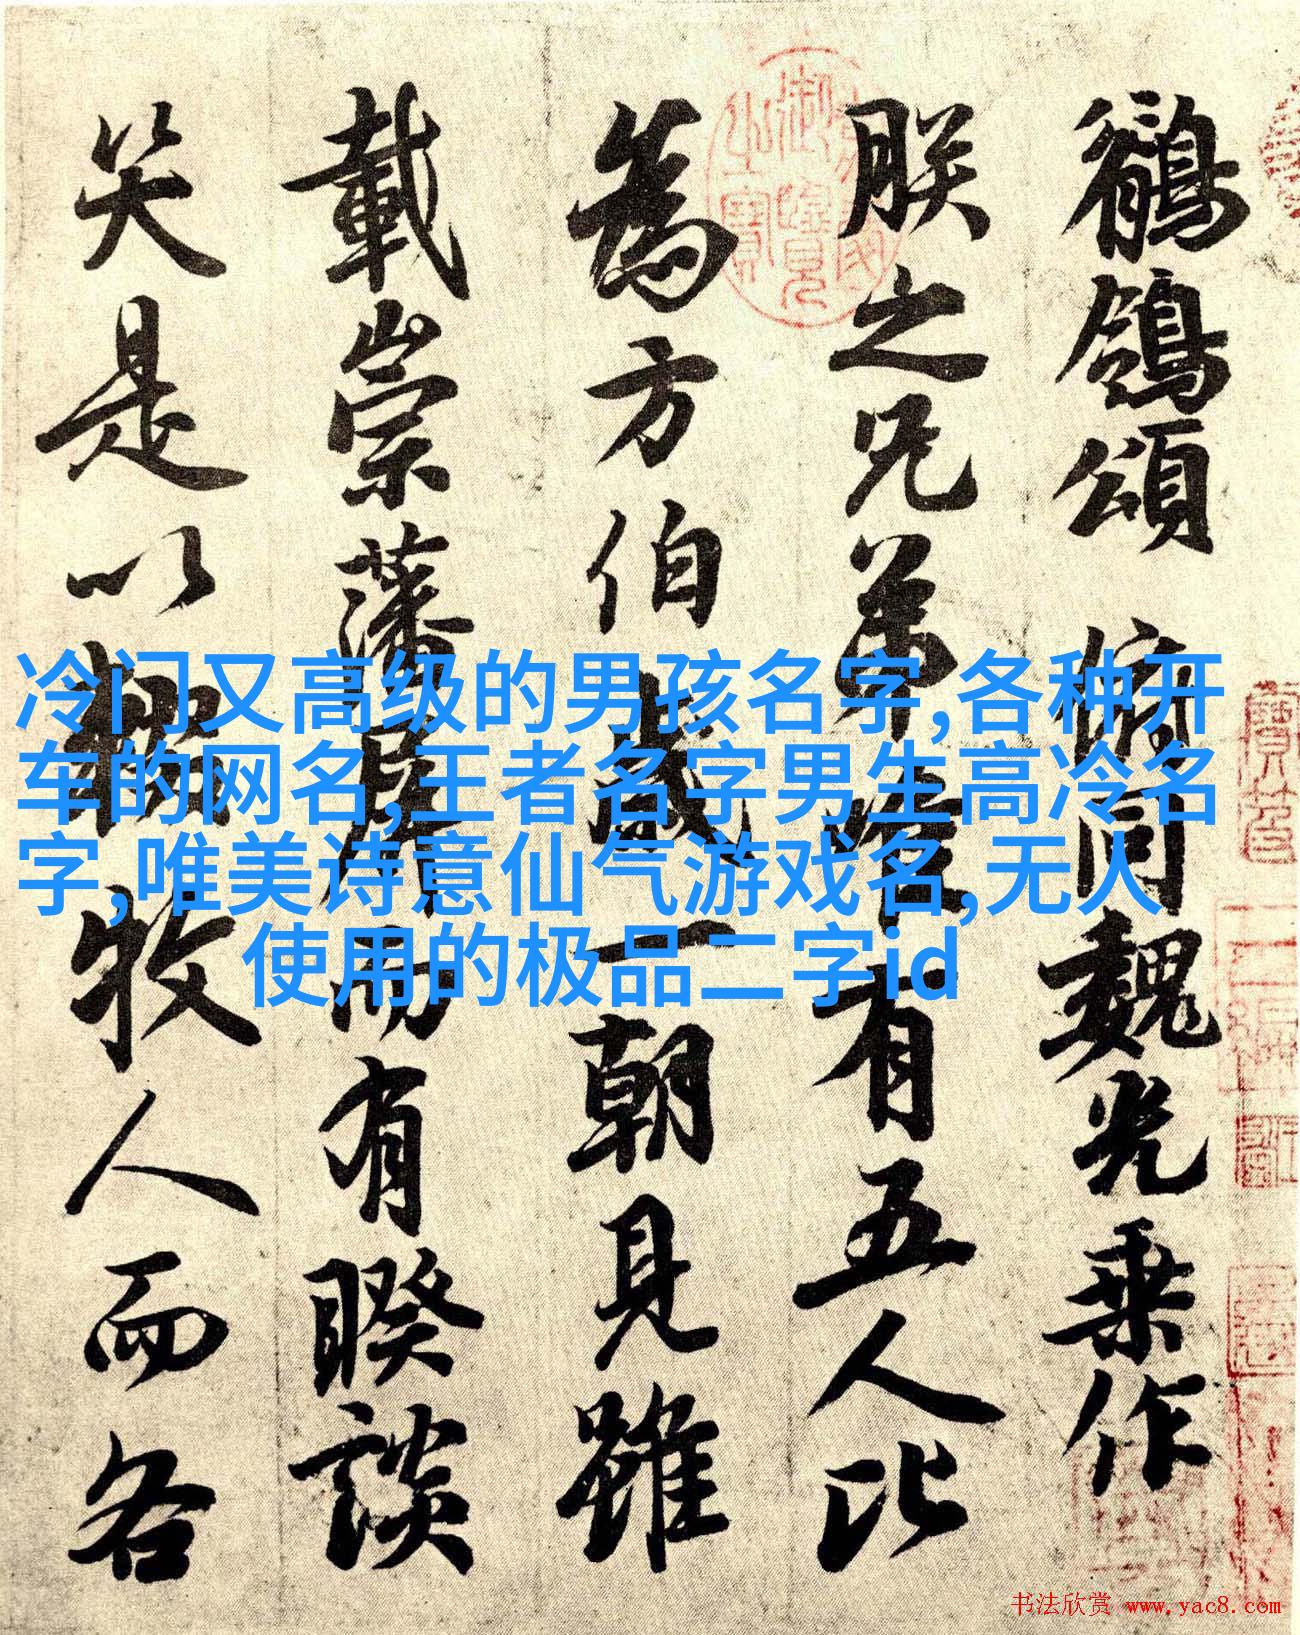 鶺鴒頌 俯同魏光乘作
朕之兄弟唯有五人比
為方伯歲一朝見雖
載崇藩屏而有睽談
笑是以輟牧人而各
冷门又高级的男孩名字,各种开
车的网名,王者名字男生高冷名
字,唯美诗意仙气游戏名,无人
使用的极品二字id
书法欣赏 www.yac8.com